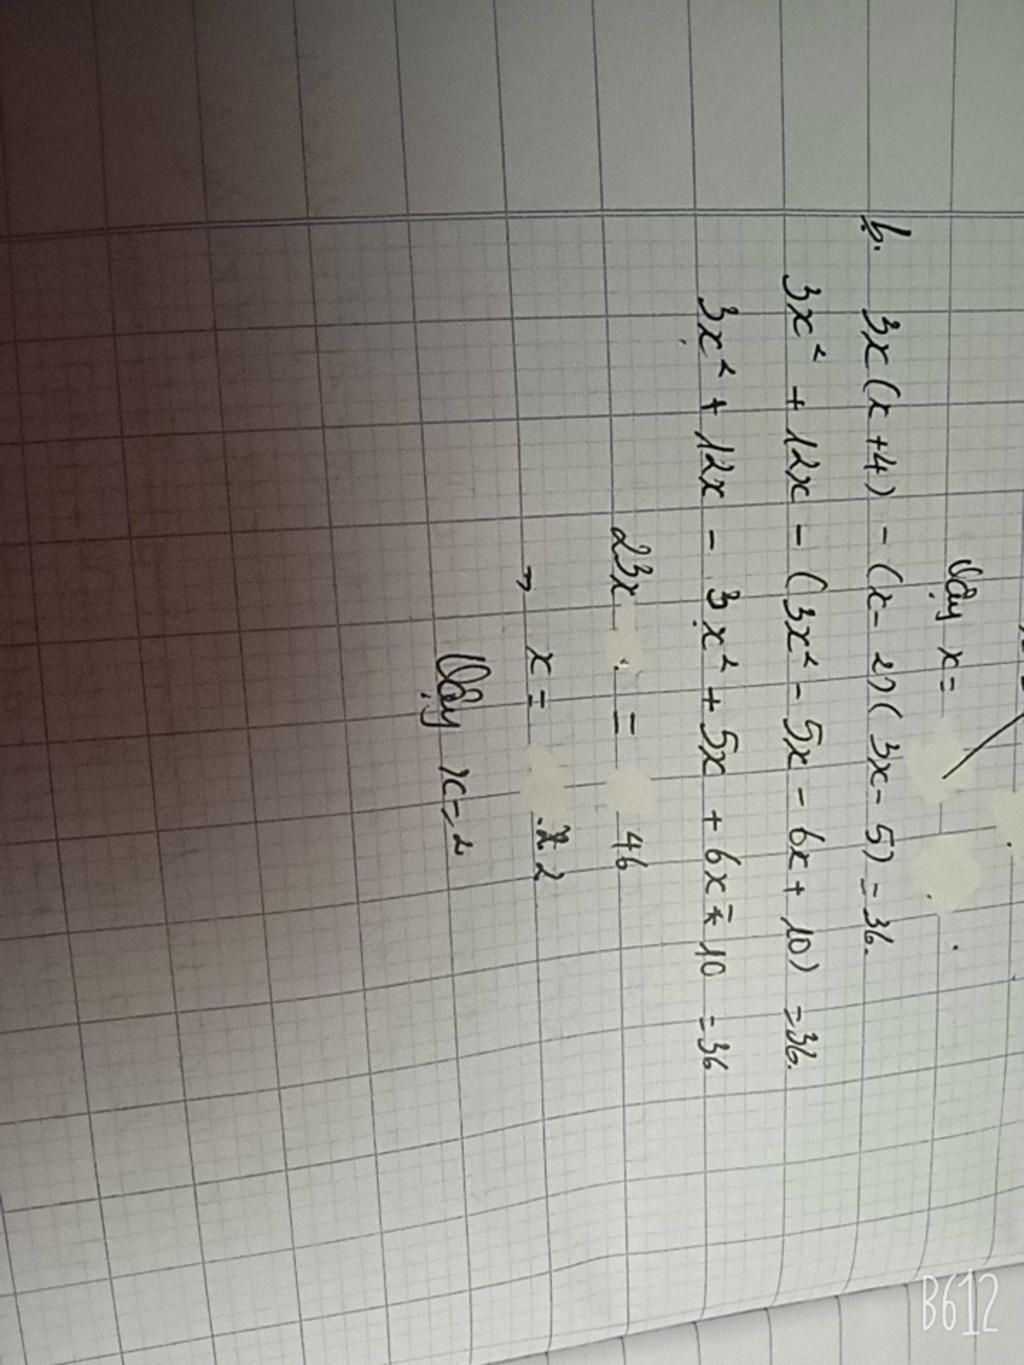 Vậy x =
b. 3x(x+4) - (x-2)(3x-5) = 36.
3x² + 12x - (3x² - 5x - 6x + 10) = 36.
3x² + 12x - 3x² + 5x + 6x - 10 = 36
23x = 46
→ x = 2
Vậy x = 2
B612